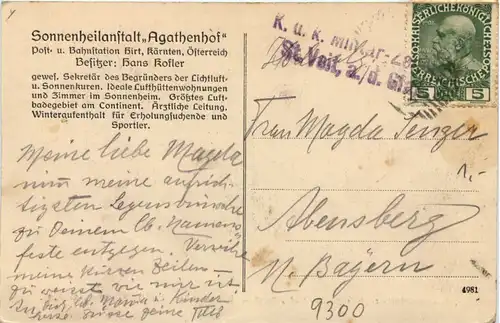 Sonnenheilanstalt „Agathenhof"
Post- u. Bahnstation Hirt, Kärnten, Österreich
Besitzer: Hans Kofler
gewef. Sekretär des Begründers der Lichtluft-
u. Sonnenkuren. Ideale Lufthüttenwohnungen
und Zimmer im Sonnenheim. Größtes Luft-
badegebiet am Continent. Ärztliche Leitung.
Winteraufenthalt für Erholungsuchende und
Sportler.
Meine liebe Magda
nimm meine aufrich-
tigsten Segenswünsche
zu Deinem lb. Namens
feste entgegen. Verzeihe
meine kurzen Zeilen
weisst wie mir ist.
Mama u. Kinder
K. u. K. Militär-Ze
St. Veit, a./d. Gl
KAISERLICHE KÖNIGLICHE
ÖSTERREICHISCHE POST
5 5
Frau Magda
Abensberg
N. Bayern
1.-
9300
4981